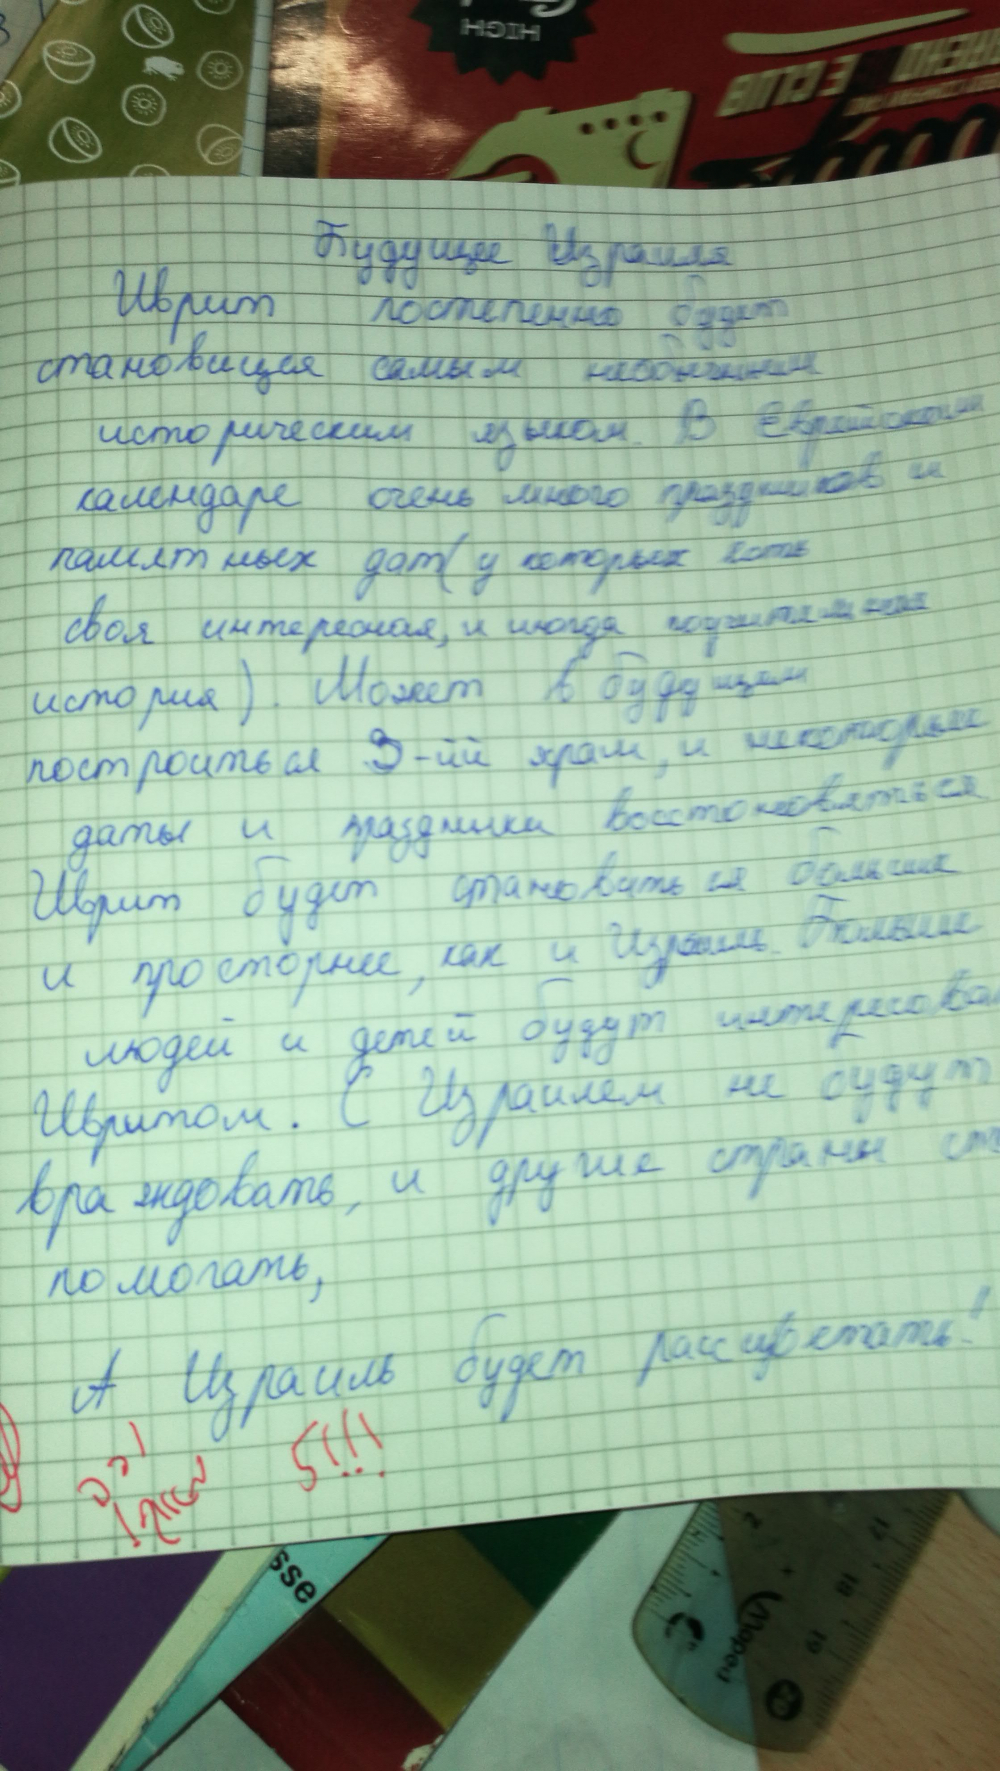 HIGH
E CLUB
Будущее Израиля
Иврит постепенно будет
становищея самым
историческим языком. В Еврейском
календаре очень много праздников и
памятных дат( у которых есть
своя интересная, и иногда поучительная
история). Может в будущем
построиться 3-ий храм, и некоторые
даты и праздники восстоновяться
Иврит будет становаться больше
и просторнее, как и Израиль. Больше
людей и детей будут интересова
Ивритом. С Израилем не будут
враждовать, и другие страны ст
помогать,
А Израиль будет рассцветать!
5!!!
sse
Maped
17
18
19
20